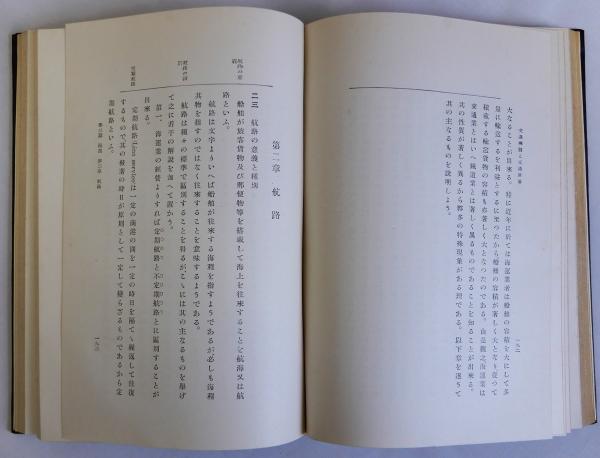 交通機關と交通政策
大なることが出來る。特に近年に於ては海運業者は船舶の容積を大にして多
量に輸送するを利益とするに至つたから船舶の容積が著しく大となり從つて
積載する輸送貨物の容積も亦著しく大となつたのである。由是觀之海運業は
交通業とはいへ鐵道業とは著しく異るものであることを知ることが出來る。
其の性質が著しく異るから幾多の特殊現象がある理である。以下章を逐うて
其の主なるものを説明しよう。
一九二
第二章 航路
二三 航路の意義と種別
航路の意義
船舶が旅客貨物及び郵便物等を搭載して海上を往來することを航海又は航
路といふ。
航路は文字よりいへば船舶が往來する海程を指すようであるが必しも海程
其物を指すのではなく往來することを意味するようである。
航路の種別
航路は種々の標準で區別することを得るが、こゝには其の主なるものを擧げ
て之に若干の解説を加へて置かう。
第一、海運業の經營よりすれば定期航路と不定期航路とに區別することが
出來る。
定期航路
定期航路(Liner service)は一定の兩港の間を一定の時日を隔てゝ繰返して往復
するもので其の發着の時日が原則として一定して變らざるものであるから定
期航路といふ。
第三編 海運 第二章 航路
一九三